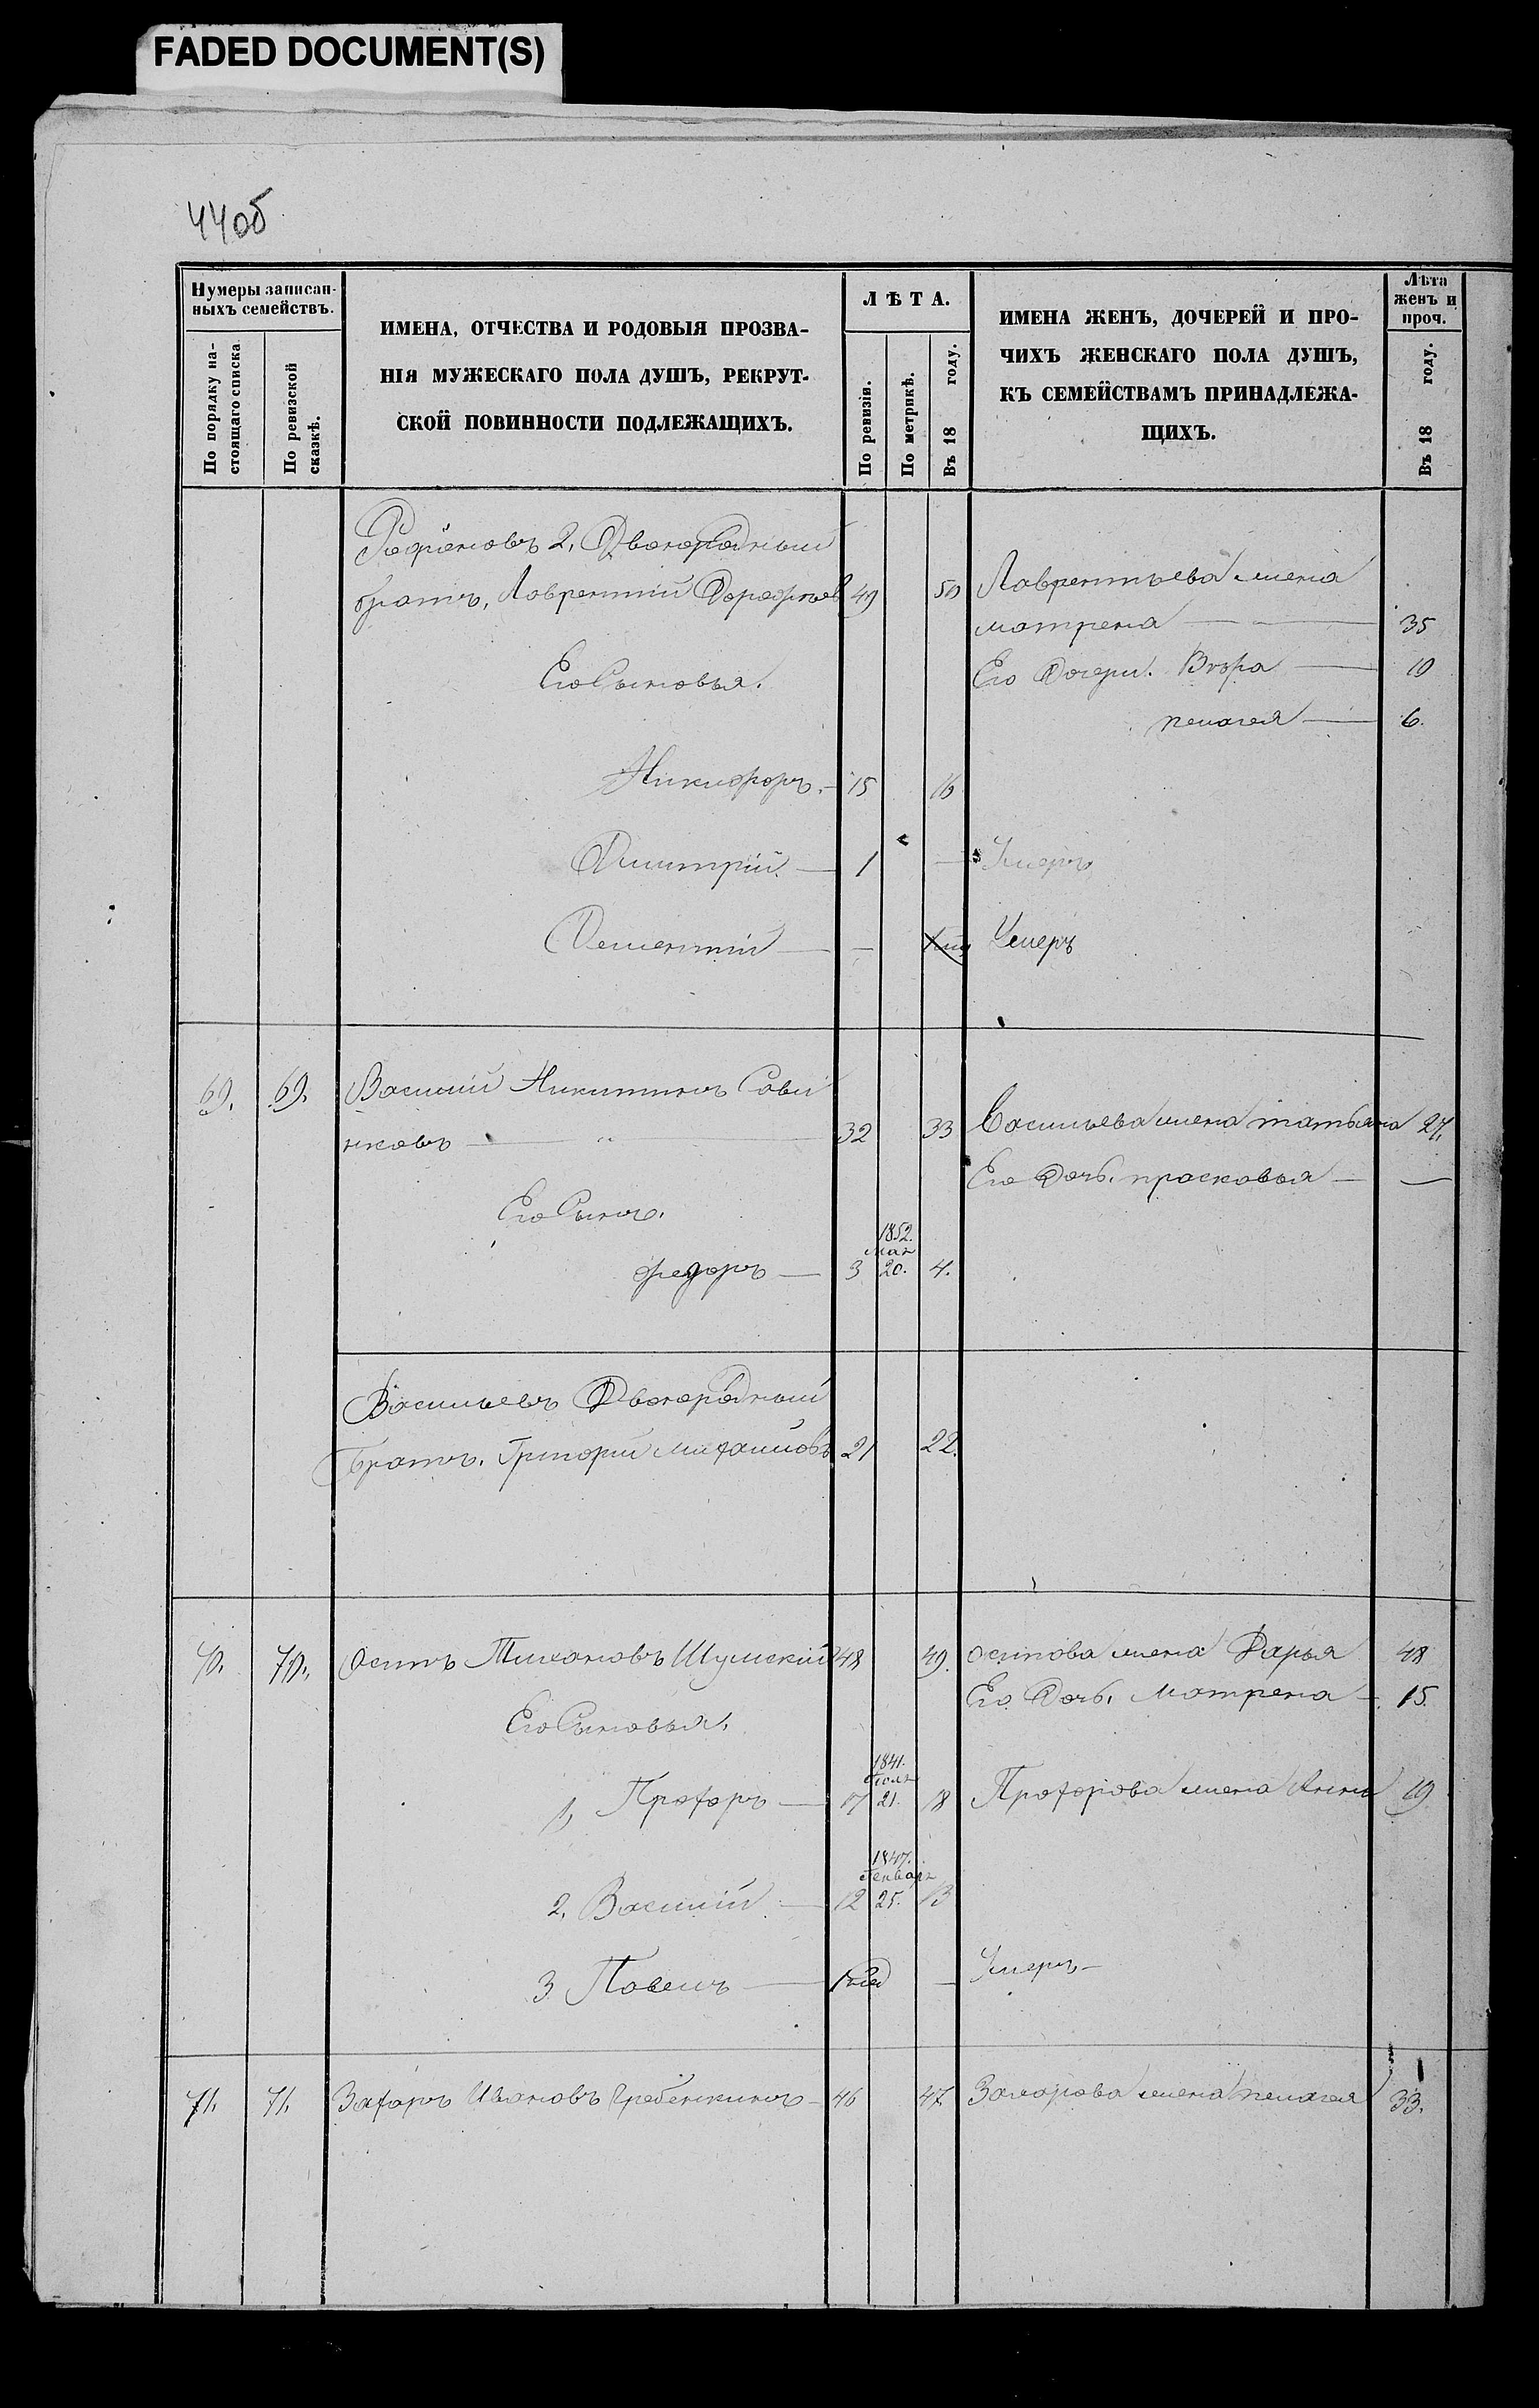 FADED DOCUMENT(S)
44об
Нумеры записан-
ныхъ семействъ.
По порядку на-
стоящаго списка
По ревизской
сказкѣ.
ИМЕНА, ОТЧЕСТВА И РОДОВЫЯ ПРОЗВА-
НІЯ МУЖЕСКАГО ПОЛА ДУШЪ, РЕКРУТ-
СКОЙ ПОВИННОСТИ ПОДЛЕЖАЩИХЪ.
ЛѢТА.
По ревизіи.
По метрикѣ.
Въ 18 году.
ИМЕНА ЖЕНЪ, ДОЧЕРЕЙ И ПРО-
ЧИХЪ ЖЕНСКАГО ПОЛА ДУШЪ,
КЪ СЕМЕЙСТВАМЪ ПРИНАДЛЕЖА-
ЩИХЪ.
Лѣта
женъ и
проч.
Въ 18 году.
2, Двоюродный
братъ, Лаврентий Дорофѣев 49 50 Лаврентьева жена
матрена 35
Его Сыновья. Его Дочери. Вѣра 10
пелагея 6.
Никифоръ. 15 16
Димитрій 1 — Умеръ
Дементій — — Умеръ
69. 69. Василий Никитинъ Сави
нковъ 32 33 Васильева жена татьяна 27.
Его Дочь. прасковья —
Его Сынъ.
1852.
мая
федоръ 3 20. 4.
Васильевъ Двоюродный
Братъ. Григорий михайловъ 21 22.
70. 70. Осипъ Тихановъ Шумский 48 49. осипова жена Дарья 48
Его Дочь. Матрена 15.
Его Сыновья.
1841.
Июля
1, Прохоръ 17 21. 18 Прохорова жена Анна 19
1847.
Генваря
2, Василий 12 25. 13
3 Павелъ — Умеръ
71. 71. Захаръ Ивановъ Гребенкинъ 46 47 Захарова жена пелагея 33.